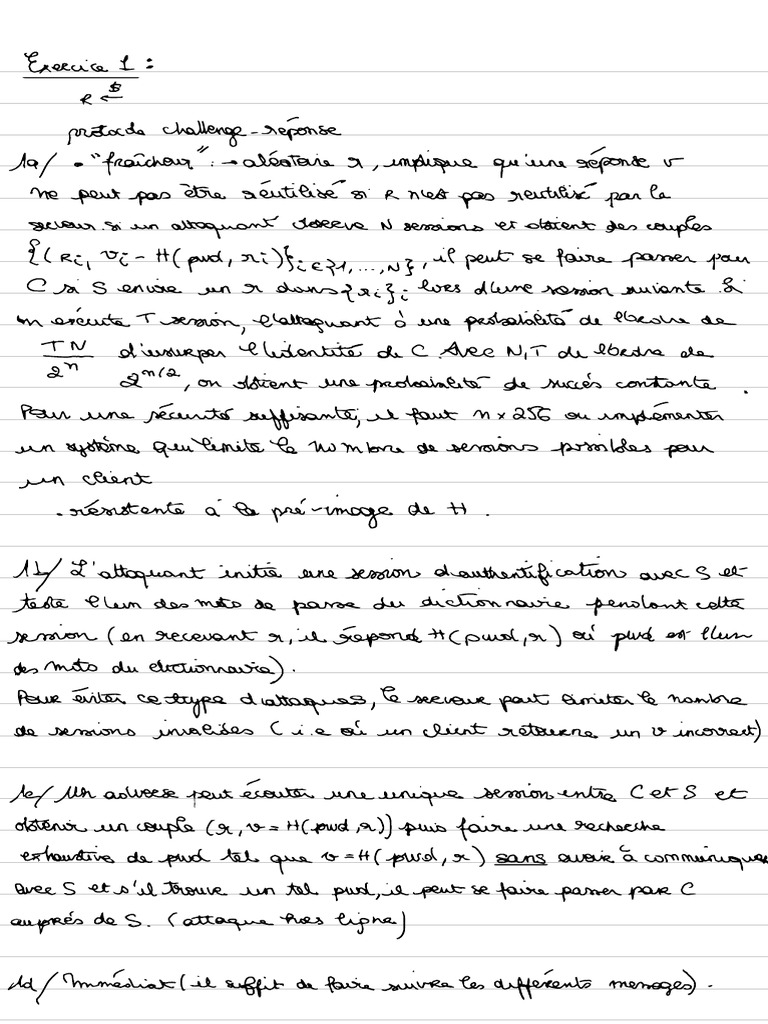 Exercice 1 :
R <-$
protocole challenge-réponse
1a/ • "fraîcheur" : → aléatoire r, implique qu'une réponse v
ne peut pas être réutilisé si R n'est pas reutilisé par le
serveur si un attaquant observe N sessions et obtient des couples
{(Ri, vi = H(pwd, ri)}i∈{1,...,N}, il peut se faire passer pour
C si S envoie un r dans {ri}i lors d'une session suivante. Si
on exécute T session, l'attaquant à une probabilité de l'ordre de
TN/2^n d'usurper l'identité de C. Avec N,T de l'ordre de
2^n/2, on obtient une probabilité de succès constante.
Pour une sécurité suffisante, il faut n × 256 ou implémenter
un système qui limite le nombre de sessions possibles pour
un client
• résistente à la pré-image de H.
1b/ L'attaquant initie une session d'authentification avec S et
teste l'un des mots de passe du dictionnaire pendant cette
session (en recevant r, il répond H(pwd, r) où pwd est l'un
des mots du dictionnaire).
Pour éviter ce type d'attaques, le serveur peut limiter le nombre
de sessions invalides (i.e où un client retourne un v incorrect)
1c/ Un adverse peut écouter une unique session entre C et S et
obtenir un couple (r, v = H(pwd, r)) puis faire une recherche
exhaustive de pwd tel que v = H(pwd, r) sans avoir à communiquer
avec S et s'il trouve un tel pwd, il peut se faire passer par C
auprés de S. (attaque hors ligne)
1d/ Immédiat (il suffit de faire suivre les différents messages).